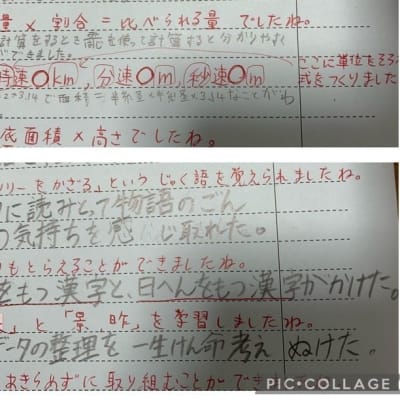 量 × 割合 = 比べられる量 でしたね。
計算をするとき を使って計算すると分かりやす
ができました。
時速〇km, 分速〇m, 秒速〇m
ここに単位をそろ
式をつくりました
で面積 = 半径×半径×3.14なことがわ
底面積 × 高さでしたね。
リーをかざる」という じゅく語を覚えられましたね。
に読みとって物語のごん
つ気持ちを感じ取れた。
もとらえることができましたね。
をもつ漢字と、日へんをもつ漢字がかけた。
」と 「景 昨」を学習しましたね。
データの整理を一生けん命考えぬけた。
あきらめずに取り組むことができ
PIC•COLLAGE